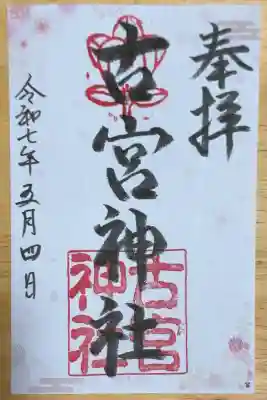 奉拝
古宮神社
古宮
神社
令和七年五月四日